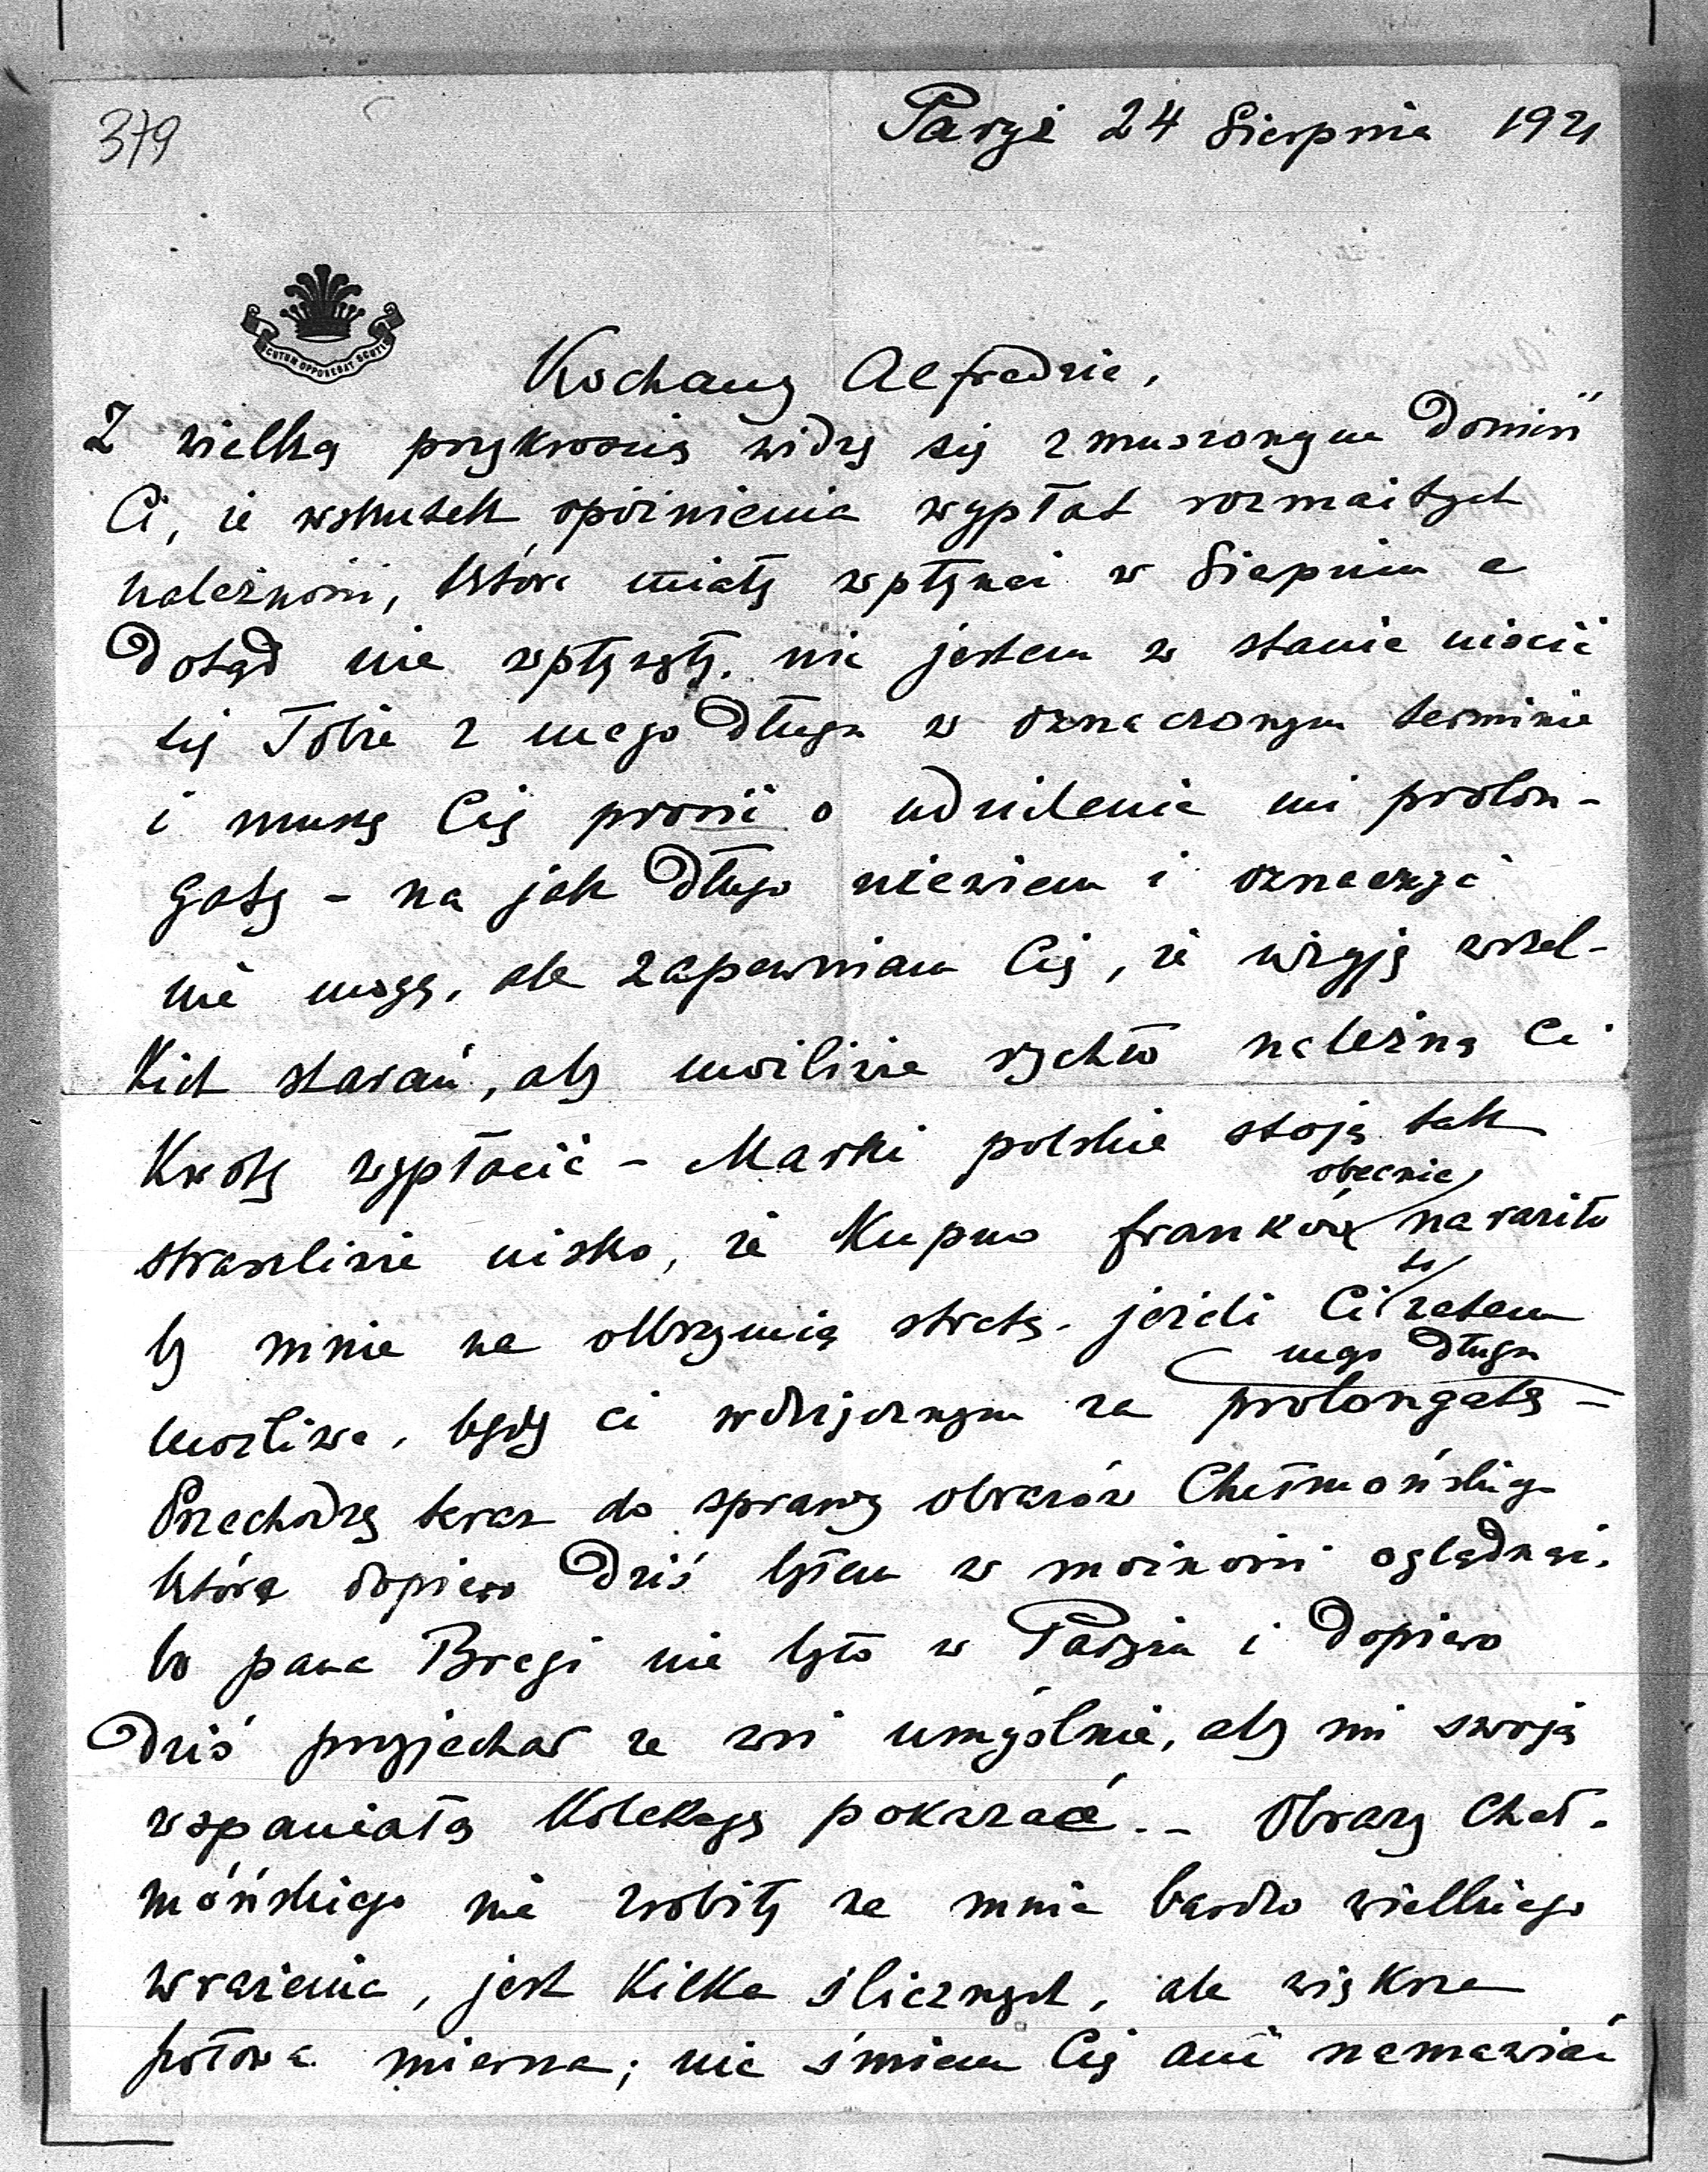 379
Paryż 24 Sierpnia 1921
SCUTUM OPPONEBAT SCUTIS
Kochany Alfredzie,
Z wielką przykrością widzę się zmuszonym donieść
Ci, że wskutek opóźnienia wypłat rozmaitych
należności, które miały wpłynąć w Sierpniu a
dotąd nie wpłynęły, nie jestem w stanie uiścić
się Tobie z mego długu w oznaczonym terminie
i muszę Cię prosić o udzielenie mi prolon-
gaty - na jak długo niewiem i oznaczyć
nie mogę, ale zapewniam Cię, że użyję wszel-
kich starań, aby możliwie rychło należną Ci
kwotę wypłacić - Marki polskie stoją tak
strasznie nisko, że kupno franków obecnie naraziło
by mnie na olbrzymią stratę. jeżeli Ci to zatem
możliwe, będę Ci wdzięcznym za prolongatę mego długu -
Przechodzę teraz do sprawy obrazów Chełmońskiego
które dopiero dziś byłem w możności oglądnąć,
bo pana Bragi nie było w Paryżu i dopiero
dziś przyjechał ze wsi umyślnie, aby mi swoją
wspaniałą kolekcyę pokazać. - Obrazy Cheł-
mońskiego nie zrobiły na mnie bardzo wielkiego
wrażenia, jest kilka ślicznych, ale większa
połowa mierna; nie śmiem Cię ani namawiać